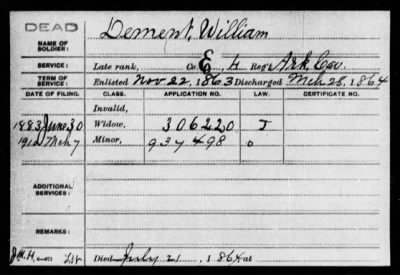 DEAD
NAME OF SOLDIER: Dement, William
SERVICE: Late rank, Co. E, 4 Reg't Ark Cav.
TERM OF SERVICE: Enlisted Nov 22, 1863 Discharged Mch 28, 1864
DATE OF FILING. CLASS. APPLICATION NO. LAW. CERTIFICATE NO.
Invalid,
1883 June 30 Widow, 306220 J
Mch 7 Minor, 937498 o
ADDITIONAL SERVICES:
REMARKS:
Died July 21, 1864 at